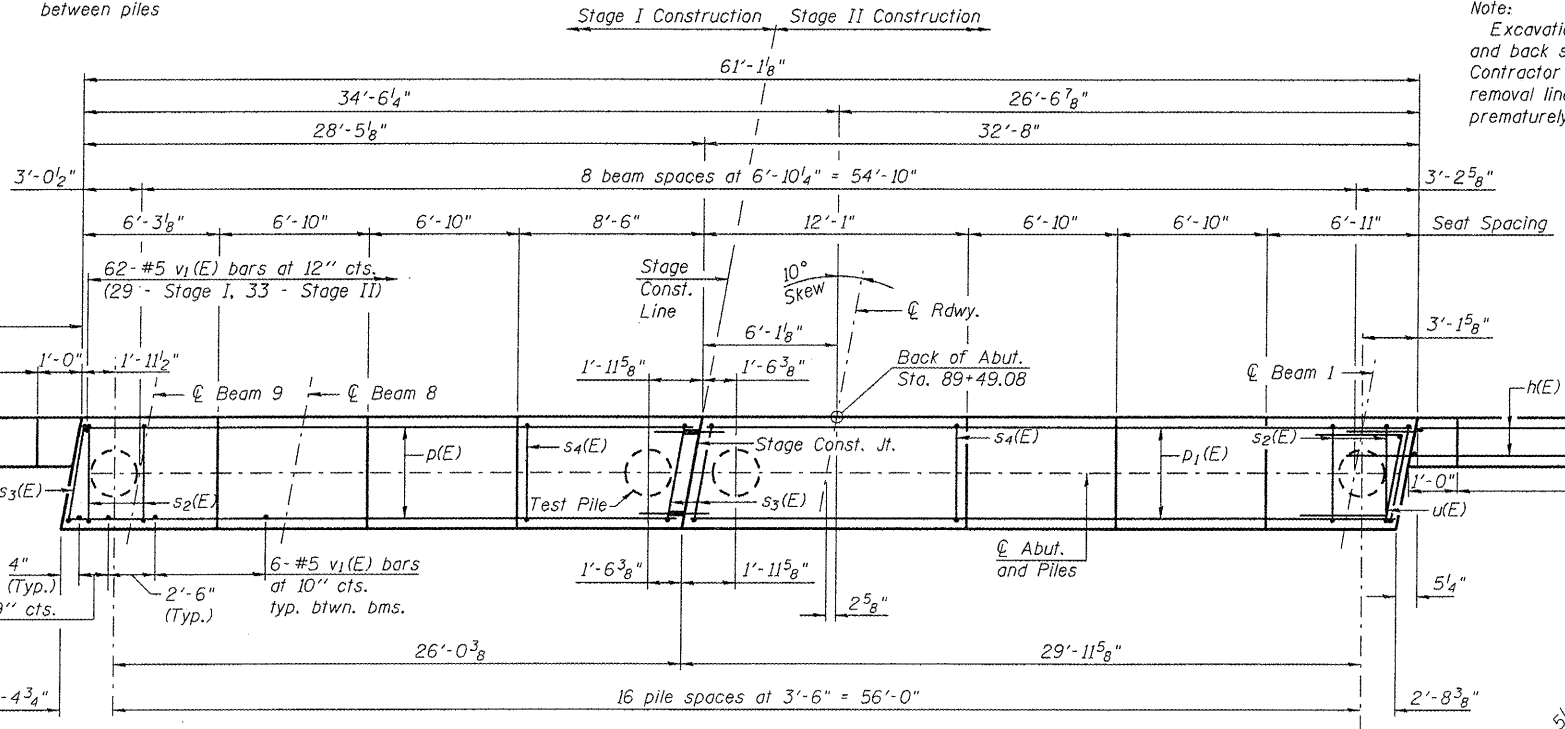 between piles
Stage I Construction Stage II Construction
Note:
Excavatio
and back s
Contractor
removal line
prematurely
61'-1⅛"
34'-6¼" 26'-6⅞"
28'-5⅛" 32'-8"
3'-0½" 8 beam spaces at 6'-10¼" = 54'-10" 3'-2⅝"
6'-3⅛" 6'-10" 6'-10" 8'-6" 12'-1" 6'-10" 6'-10" 6'-11" Seat Spacing
62-#5 v1(E) bars at 12" cts.
(29 - Stage I, 33 - Stage II)
Stage
Const.
Line
10°
Skew
℄ Rdwy.
6'-1⅛"
3'-1⅝"
1'-0" 1'-11½"
1'-11⅝" 1'-6⅜"
Back of Abut.
Sta. 89+49.08
℄ Beam 9 ℄ Beam 8
℄ Beam 1
h(E)
s3(E) s2(E) p(E) s4(E) Stage Const. Jt. s4(E) p1(E) s2(E)
Test Pile s3(E)
1'-0"
u(E)
℄ Abut.
and Piles
4"
(Typ.)
9" cts.
2'-6"
(Typ.)
6-#5 v1(E) bars
at 10" cts.
typ. btwn. bms.
1'-6⅜" 1'-11⅝"
2⅝"
5¼"
26'-0⅜ 29'-11⅝"
-4¾" 16 pile spaces at 3'-6" = 56'-0" 2'-8⅜"